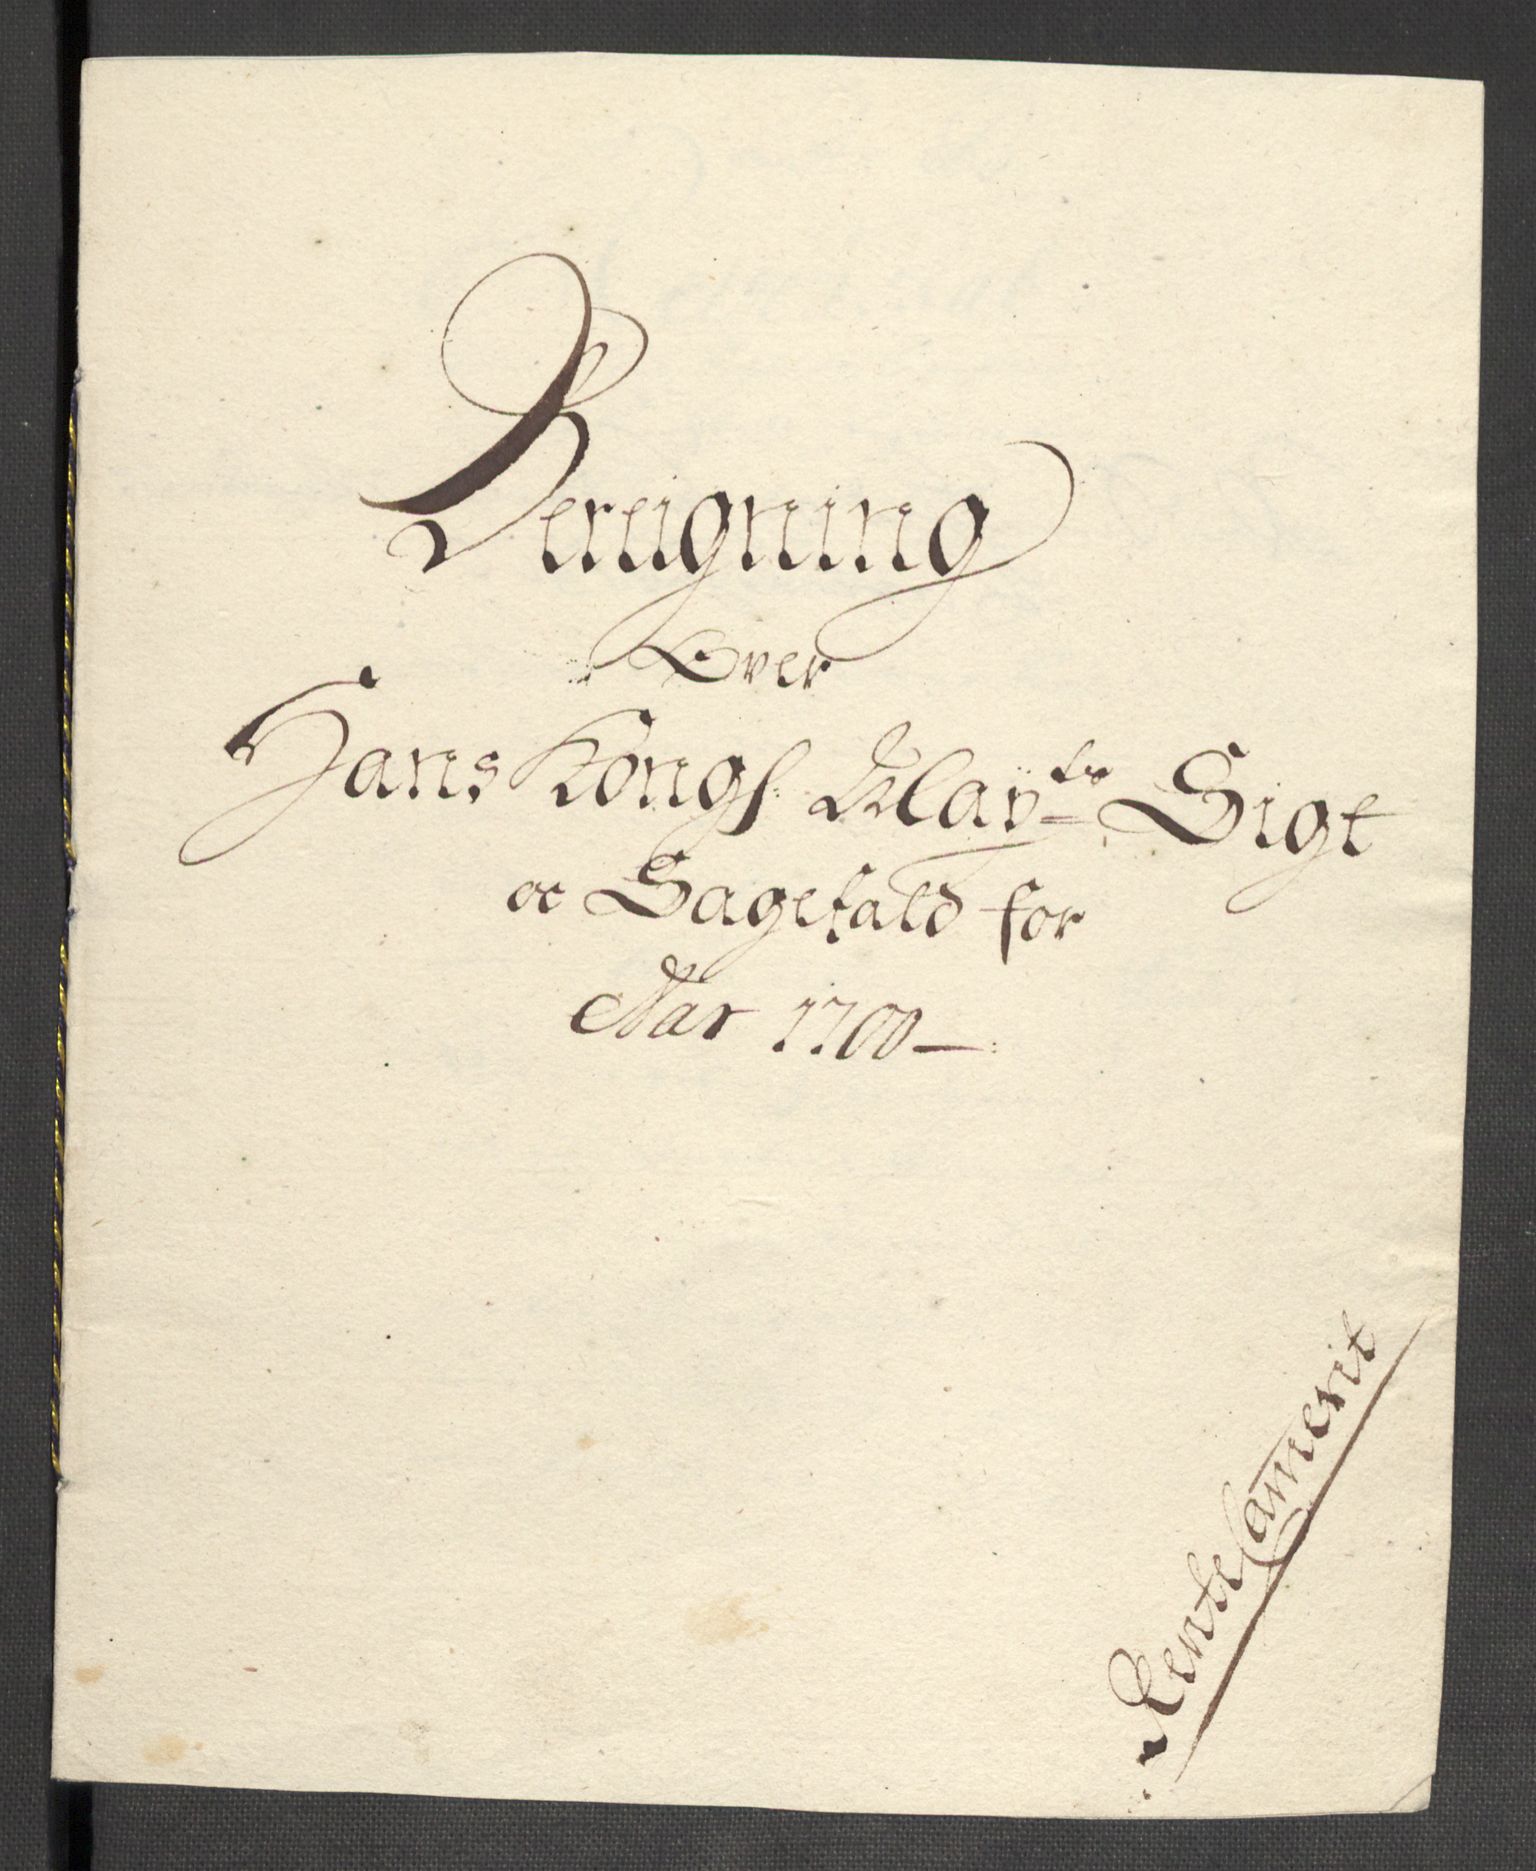 Bereigning
Over
Hans Kongl. Mayts Sigt
oc Sagefald for
Aar 1700
Rente Camerit